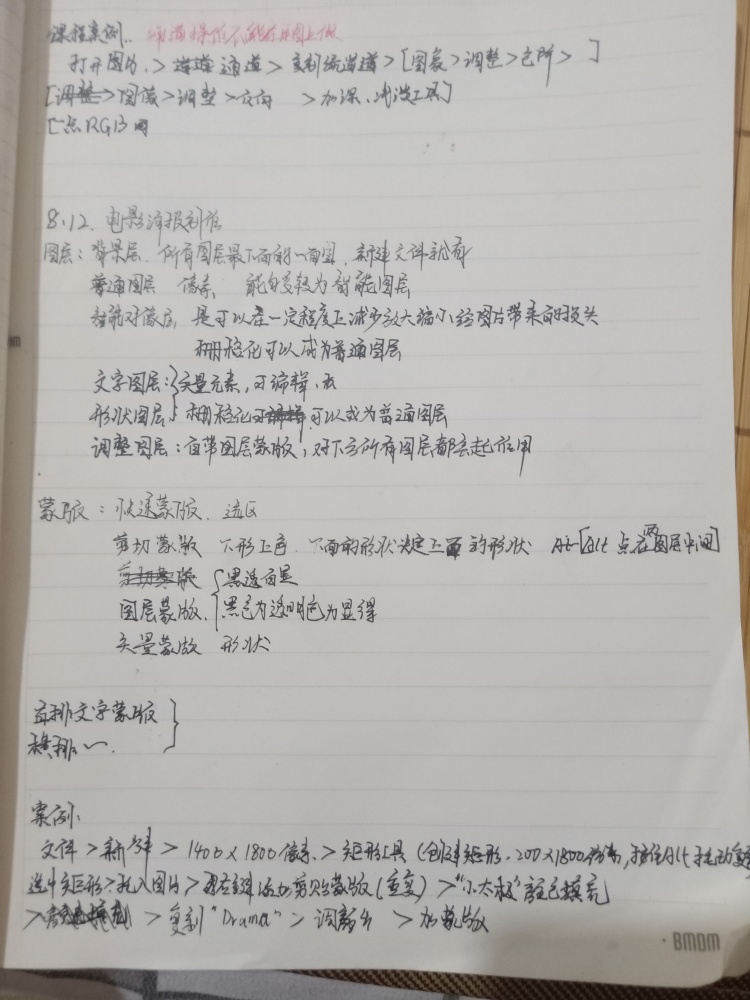 课程案例.. 通道操作不能在原图上做
打开图片 > 通道 > 复制通道 > [图象 > 调整 > 色阶 > ]
[ > 图像 > 调整 > 反向 > 加深、减淡工具]
[点RGB
8.12. 电影海报制作
图层：背景层. 所有图层最下面的一面图，新建文件就有
普通图层 像素 能够转换为智能图层
智能对像层，是可以在一定程度上减少放大缩小给图片带来的损失
栅格化可以成为普通图层
文字图层：矢量元素，可编辑，
形状图层 栅格化可以成为普通图层
调整图层：自带图层蒙版，对下方所有图层都会起作用
蒙版：快速蒙版. 选区
剪切蒙版 下形上色. 下面的形状决定上面的形状 Alt [Alt 点在两图层中间]
黑透白显
图层蒙版. 黑色为透明白色为显得
矢量蒙版 形状
直排文字蒙版
横排〜.
案例：
文件 > 新建 > 1400 × 1800像素 > 矩形工具 (创建矩形. 200×1800像素, 按住Alt 拖动复
选中矩形 > 拖入图片 > 右键 添加剪贴蒙版 (重复) >
> 复制 "Drama" > 调整 > 加蒙版
BMDM